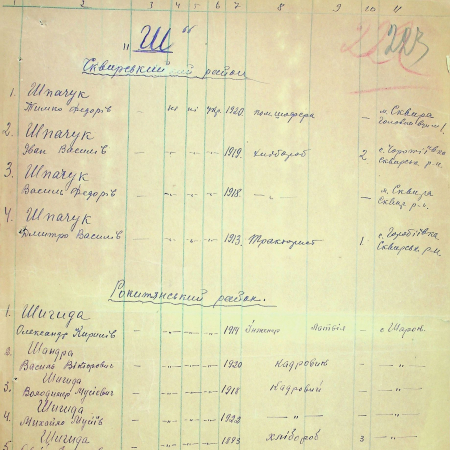 1 2 3 4 5 6 7 8 9 10 11
„Ш“
203
Сквирський район
1. Шпачук
Тимко Федорів - чл ні укр. 1920. пом. шофера — м. Сквира
2. Шпачук
Іван Василів - 1919. хлібороб 2 с.
Сквирськ. р-н
3. Шпачук
Василь Федорів - 1918. - „ - — м. Сквира
Сквир. р-н.
4. Шпачук
Дмитро Василів - 1913. Тракторист 1 с.
Сквирськ. р-н
Рокитянський район.
1. Шигида
Олександр Кирилів - 1914 Інженер Латвія - с
2. Шандра
Василь Вікторович - 1920 Кадровик - „ -
3. Шигида
Володимир Мусієвич - 1918 Кадровий - „ -
4. Шигида
Михайло Мусіїв - 1922 - „ -
5. Шигида
1893 хлібороб 3 - „ -